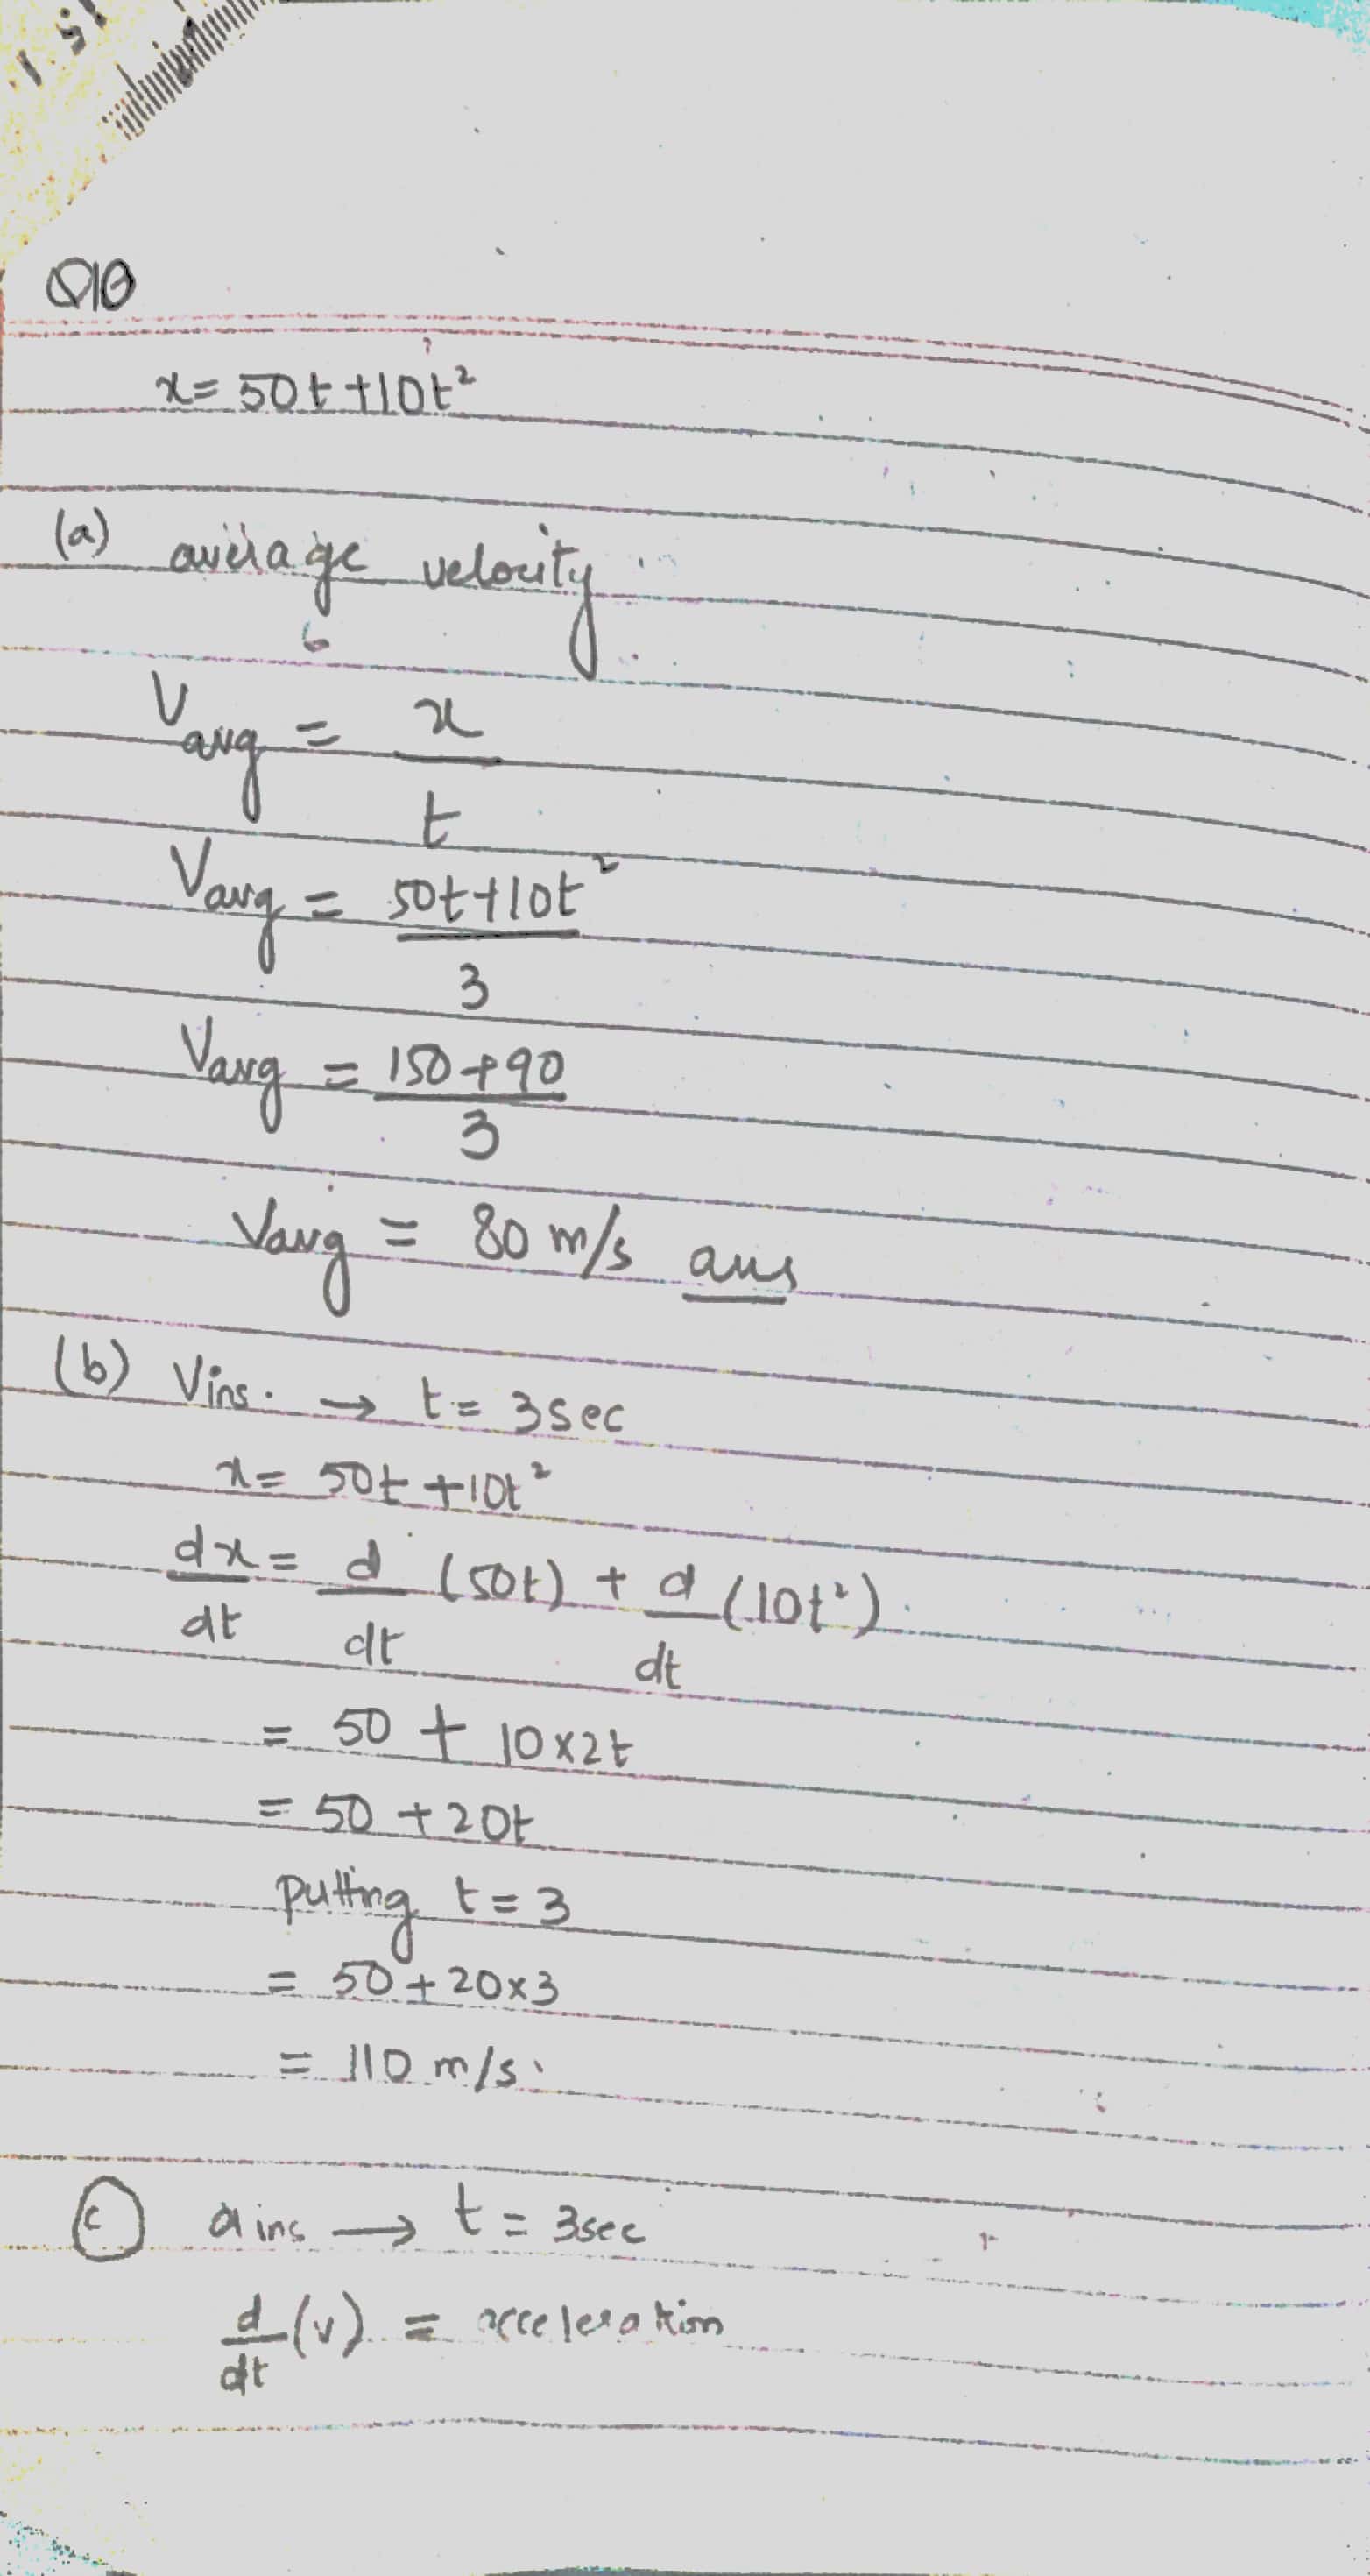 Q10
x = 50t + 10t²
(a) average velocity
Vavg = x
t
Vavg = 50t + 10t²
3
Vavg = 150 + 90
3
Vavg = 80 m/s ans
(b) Vins. → t = 3 sec
x = 50t + 10t²
dx = d (50t) + d (10t²)
dt dt dt
= 50 + 10 × 2t
= 50 + 20t
putting t = 3
= 50 + 20 × 3
= 110 m/s.
(c) a ins → t = 3 sec
d (v) = acceleration
dt